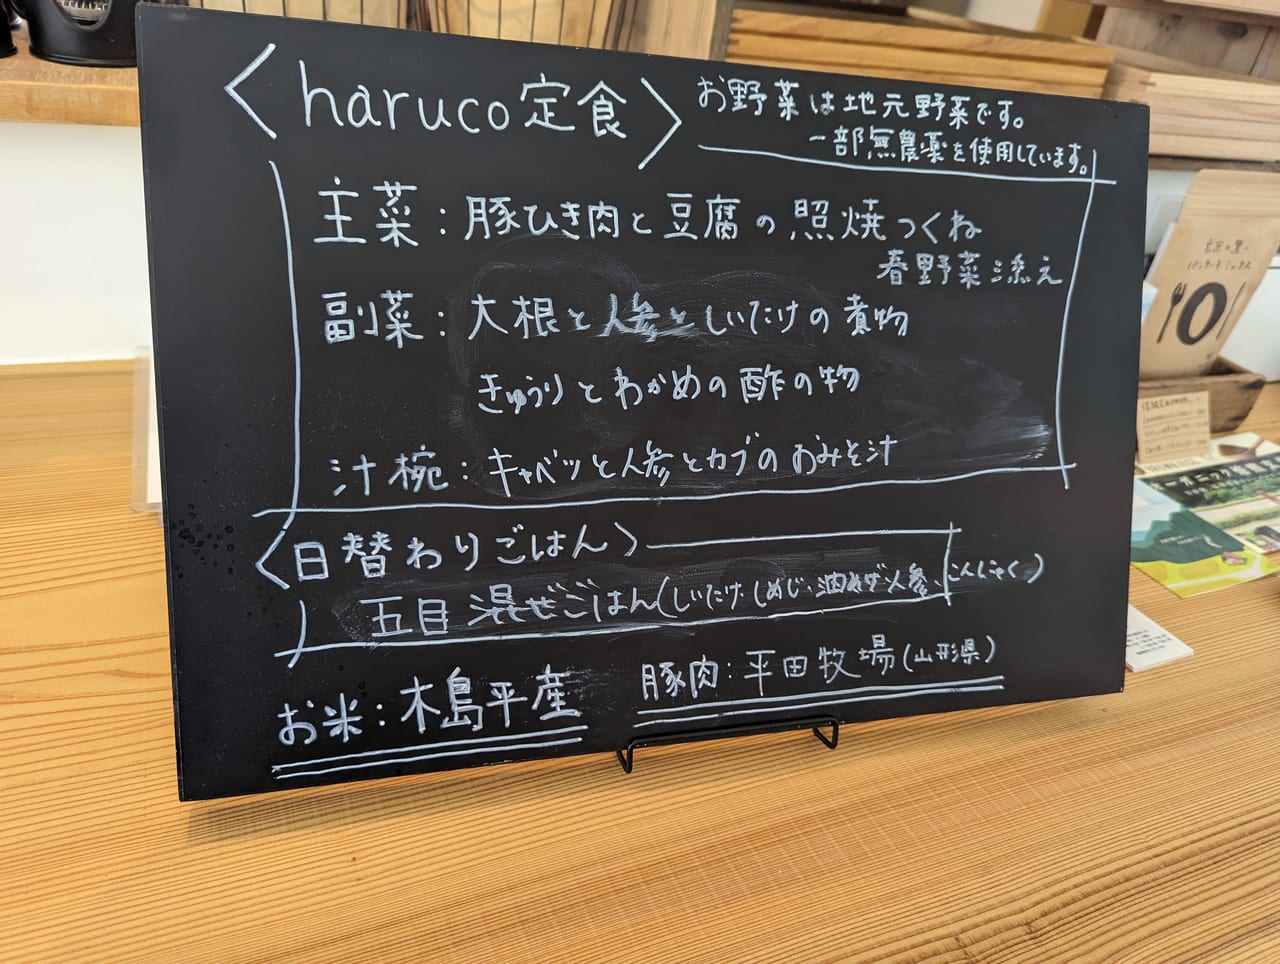 〈haruco定食〉
お野菜は地元野菜です。
一部無農薬を使用しています。
主菜：豚ひき肉と豆腐の照焼つくね
春野菜添え
副菜：大根と人参としいたけの煮物
きゅうりとわかめの酢の物
汁椀：キャベツと人参とカブのおみそ汁
〈日替わりごはん〉
五目混ぜごはん(しいたけ、しめじ、油あげ、人参、こんにゃく)
お米：木島平産
豚肉：平田牧場(山形県)